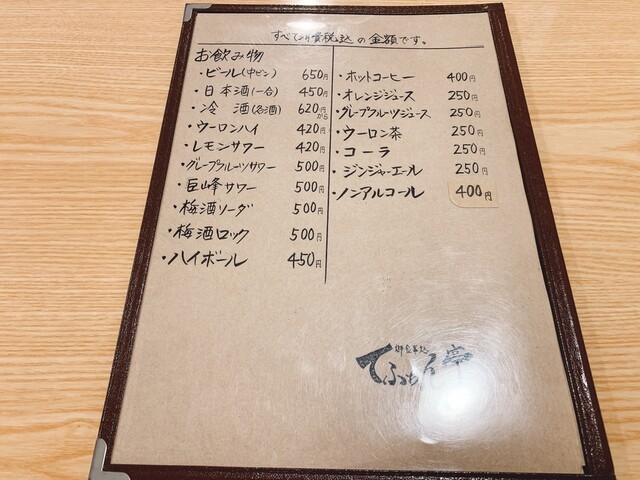 すべて消費税込の金額です。
お飲み物
・ビール(中ビン) 650円
・日本酒(一合) 450円
・冷酒(名酒) 620円から
・ウーロンハイ 420円
・レモンサワー 420円
・グレープフルーツサワー 500円
・巨峰サワー 500円
・梅酒ソーダ 500円
・梅酒ロック 500円
・ハイボール 450円
・ホットコーヒー 400円
・オレンジジュース 250円
・グレープフルーツジュース 250円
・ウーロン茶 250円
・コーラ 250円
・ジンジャーエール 250円
・ノンアルコール 400円
御食事処